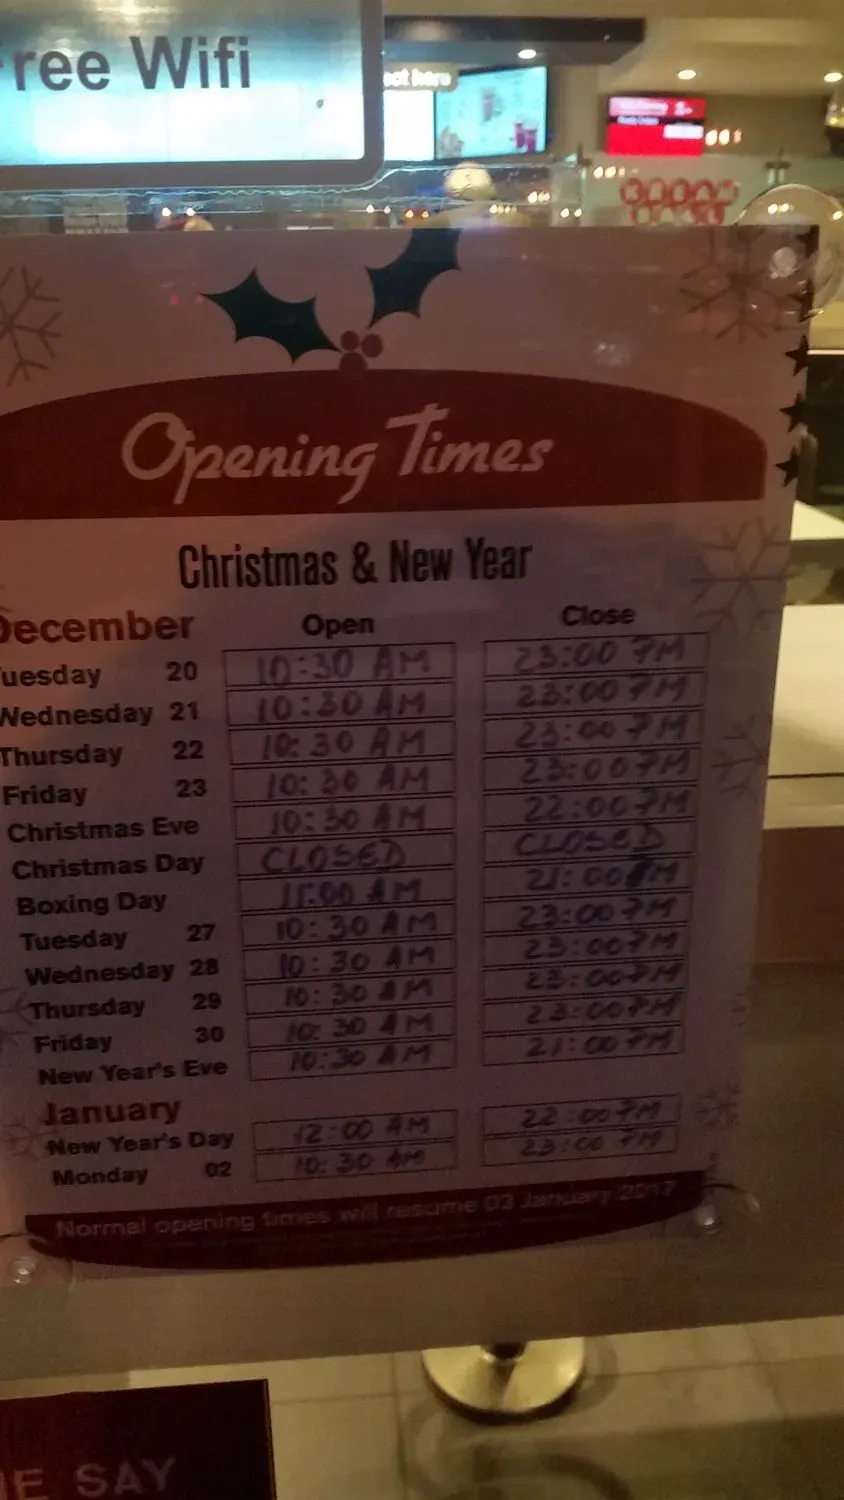 ree Wifi
Opening Times
Christmas & New Year
December Open Close
uesday 20 10:30 AM 23:00 PM
Wednesday 21 10:30 AM 23:00 PM
Thursday 22 10:30 AM 23:00 PM
Friday 23 10:30 AM 23:00 PM
Christmas Eve 10:30 AM 22:00 PM
Christmas Day CLOSED CLOSED
Boxing Day 11:00 AM 21:00 PM
Tuesday 27 10:30 AM 23:00 PM
Wednesday 28 10:30 AM 23:00 PM
Thursday 29 10:30 AM 23:00 PM
Friday 30 10:30 AM 23:00 PM
New Year's Eve 10:30 AM 21:00 PM
January
New Year's Day 12:00 AM 22:00 PM
Monday 02 10:30 AM 23:00 PM
Normal opening times will resume 03 January 2017
E SAY